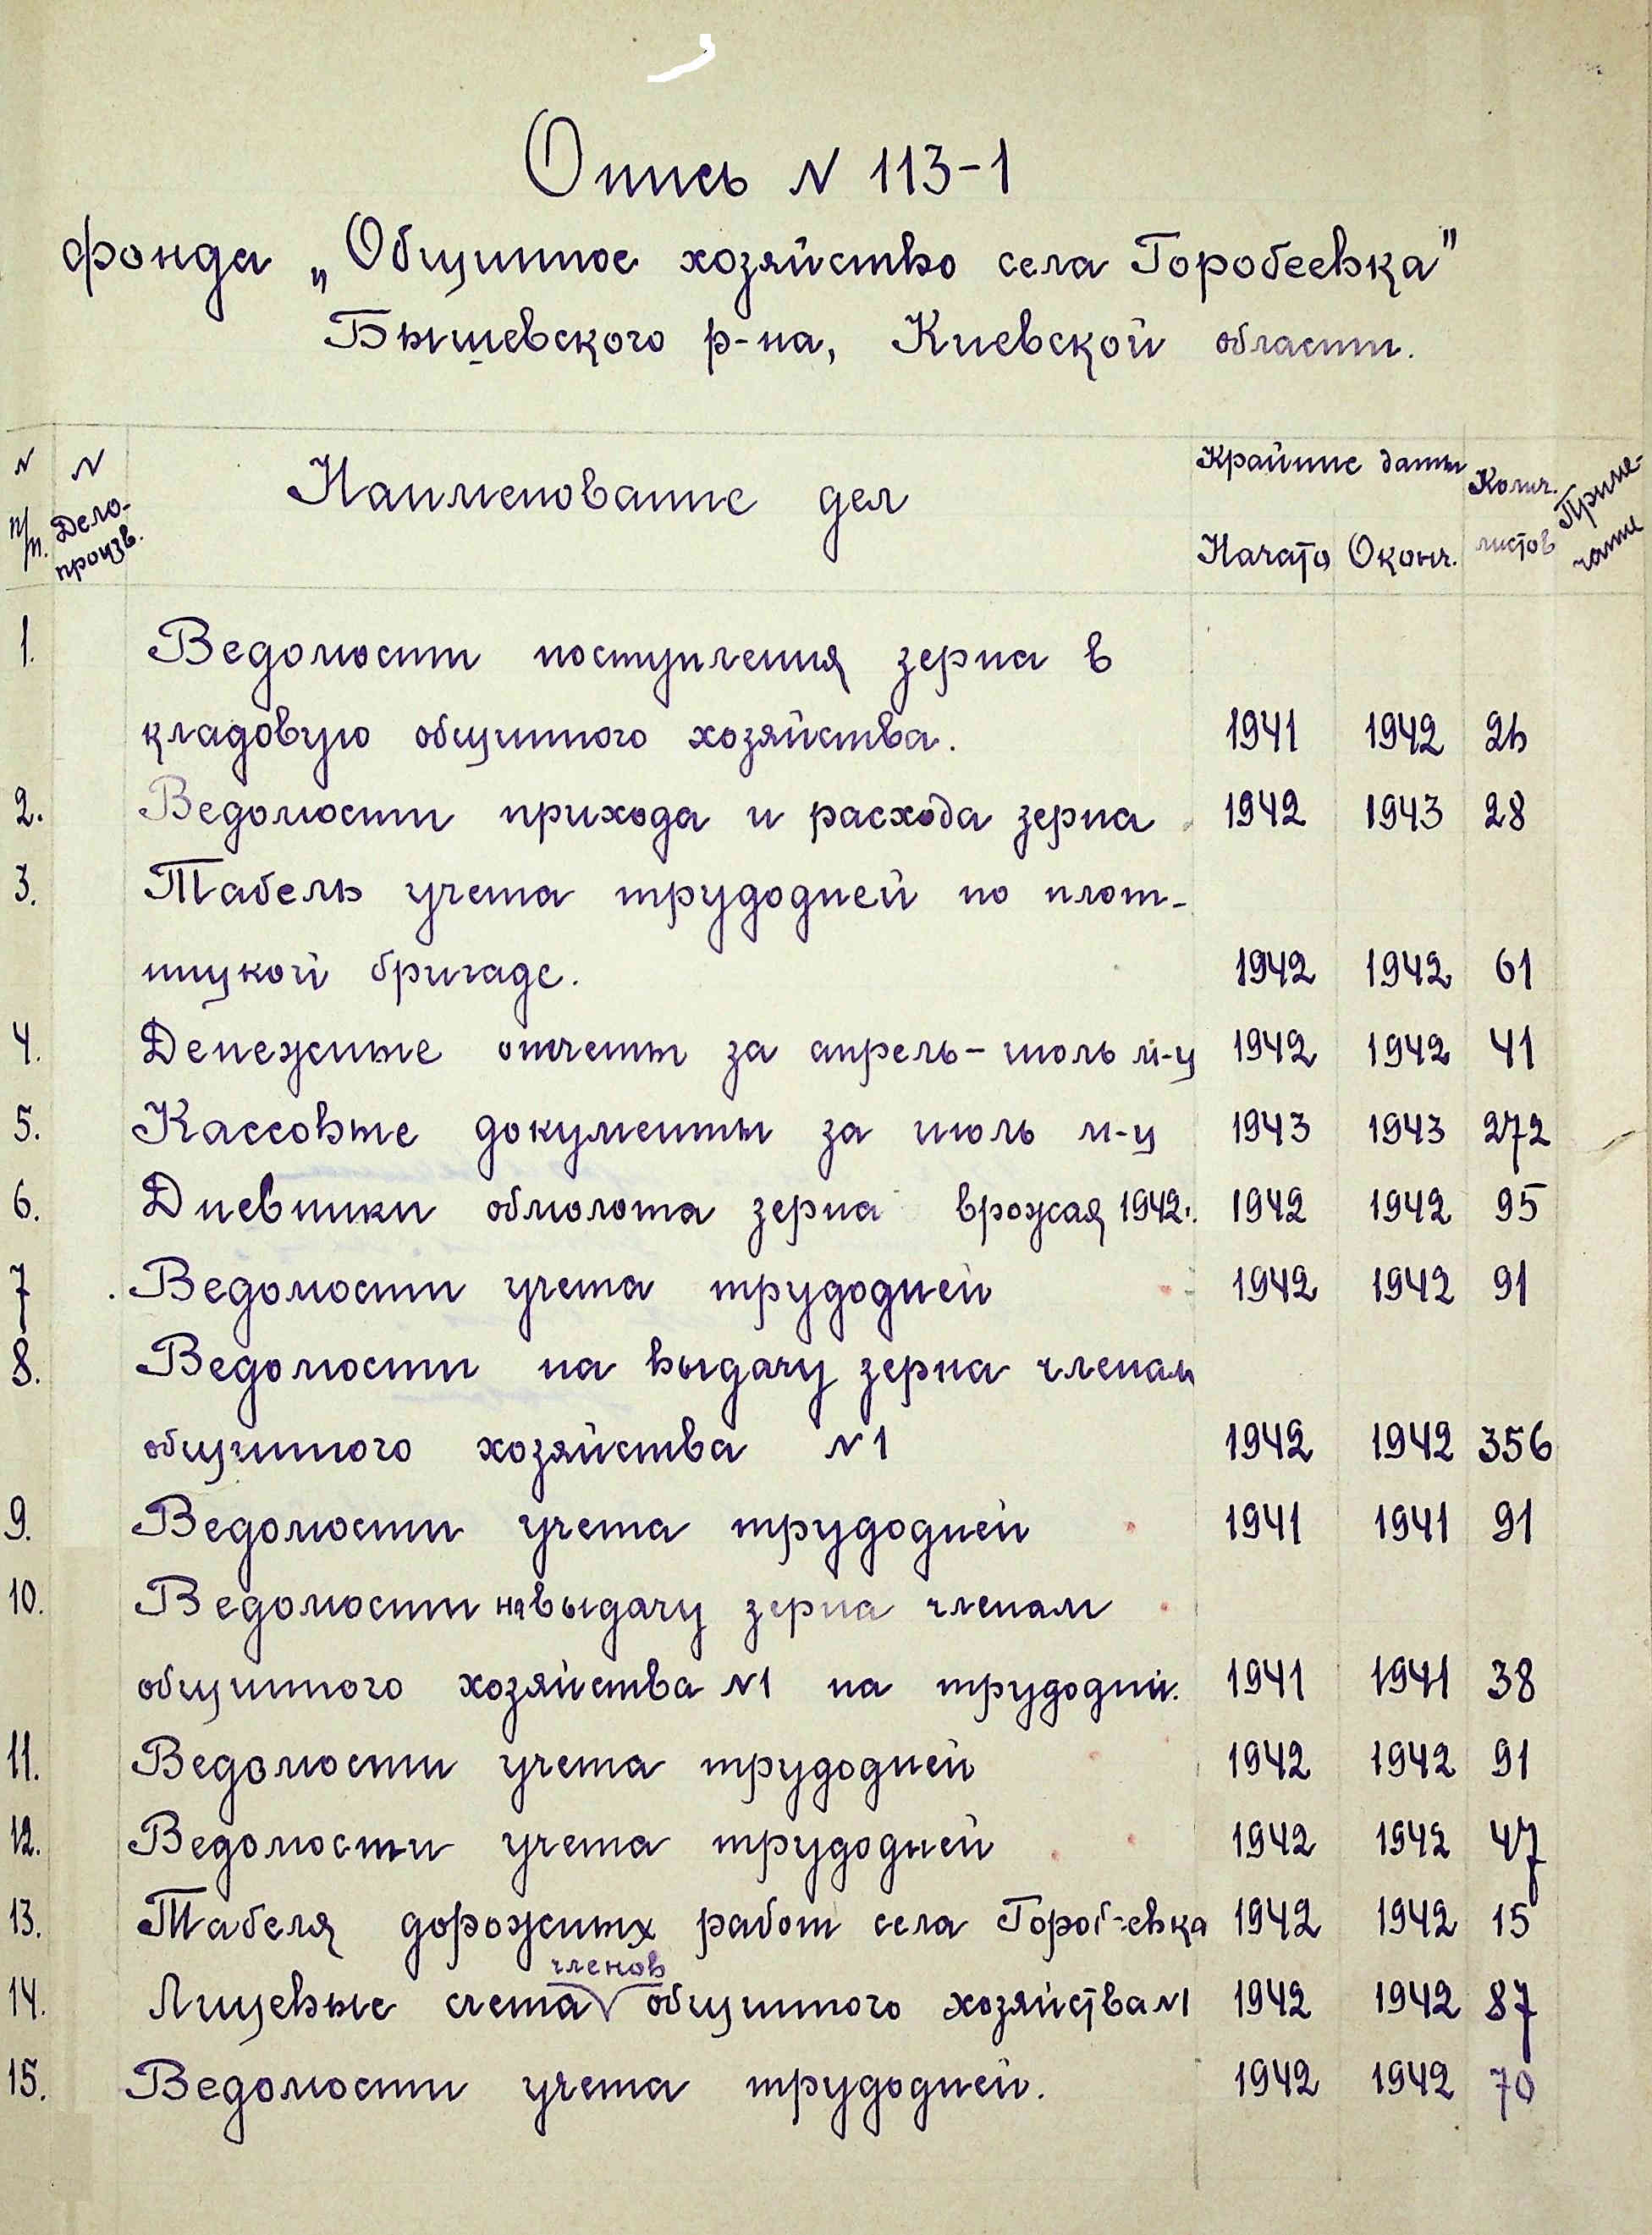 Опись N 113-1
фонда „Общинное хозяйство села Горобеевка"
Бышевского р-на, Киевской области.
N п/п. N Дело-произв. Наименование дел Крайние даты Начато Оконч. Колич. листов Приме-чание
1. Ведомости поступления зерна в
кладовую общинного хозяйства. 1941 1942
2. Ведомости прихода и расхода зерна 1942 1943 28
3. Табель учета трудодней по плот-
ницкой бригаде. 1942 1942 61
4. Денежные отчеты за апрель-июль м-ц 1942 1942 41
5. Кассовые документы за июль м-ц 1943 1943 272
6. Дневники обмолота зерна врожая 1942. 1942 1942 95
7 Ведомости учета трудодней 1942 1942 91
8. Ведомости на выдачу зерна членам
общинного хозяйства N1 1942 1942 356
9. Ведомости учета трудодней 1941 1941 91
10. Ведомости на выдачу зерна членам
общинного хозяйства N1 на трудодни. 1941 1941 38
11. Ведомости учета трудодней 1942 1942 91
12. Ведомости учета трудодней 1942 1942 47
13. Табеля дорожных работ села Горобеевка 1942 1942 15
членов
14. Лицевые счета общинного хозяйства N1 1942 1942 87
15. Ведомости учета трудодней. 1942 1942 70